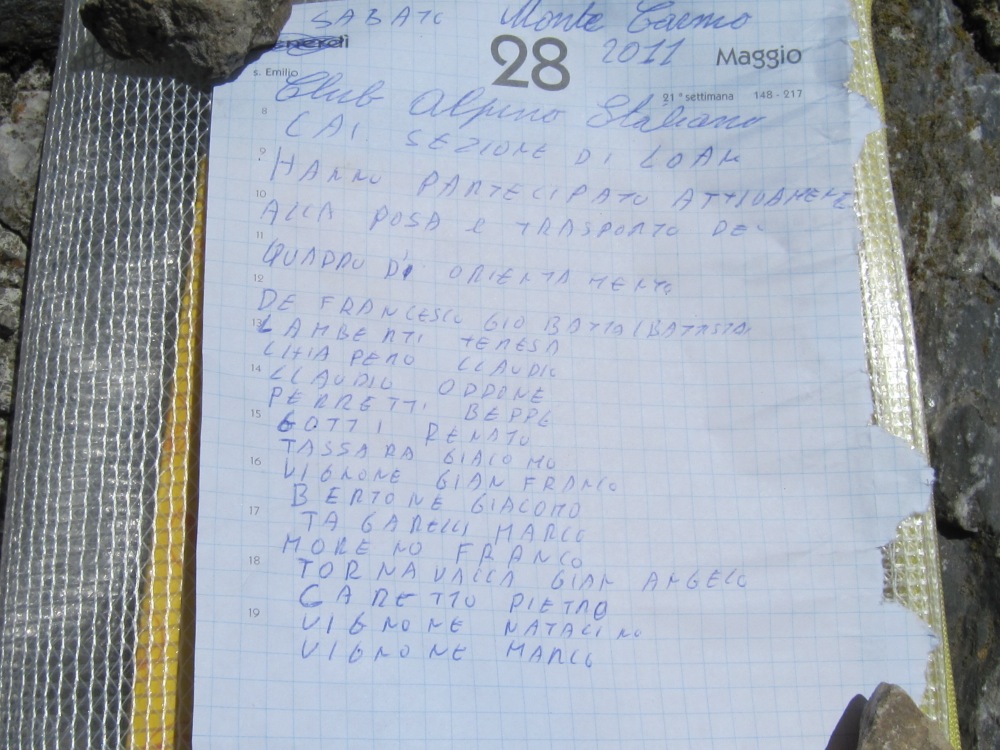 SABATO Monte Carmo
Venerdì 28 2011 Maggio
s. Emilio 21ª settimana 148 - 217
Club Alpino Italiano
8
CAI. SEZIONE DI LOANO
9
HANNO PARTECIPATO ATTIVAMENTE
10
ALLA POSA E TRASPORTO DEL
11
QUADRO DI ORIENTAMENTO
12
DE FRANCESCO GIO BATTA (BATTISTA)
13
LAMBERTI TERESA
CLAUDIO
14
CLAUDIO ODDONE
PERRETTI BEPPE
15
GOTTI RENATO
TASSARA GIACOMO
16
VIGNONE GIAN FRANCO
BERTONE GIACOMO
17
TAGARELLI MARCO
MORENO FRANCO
18
TORNAVACCA GIAN ANGELO
CARETTO PIETRO
19
VIGNONE NATALINO
VIGNONE MARCO